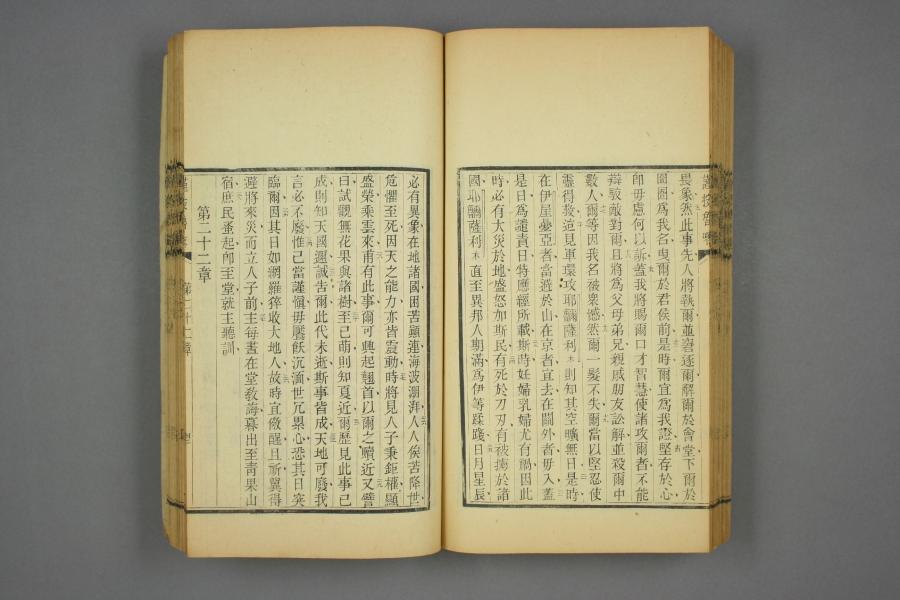 畏象然此事先人將執爾並窘逐爾解爾於會堂下爾於
囹圄爲我名曳爾於君侯前是時爾宜爲我證堅存於心
卽毋慮何以訴蓋我將賜爾口才智慧使諸攻爾者不能
辯駁敵對爾且將爲父母弟兄親戚朋友訟解並殺爾中
數人爾等因我名被衆憾然爾一髮不失爾當以堅忍使
靈得救這見軍環攻耶嚼薩利則知其空曠無日是時
在伊屋疊亞者當遁於山在京者宜去在關外者毋入蓋
是日爲譴責日特應經所載斯時妊婦乳婦尤有禍因此
時必有大災於地盛怒加斯民有死於刃有被擄於諸
國耶嚼薩利直至異邦人期滿爲伊等蹂踐日月星辰
必有異象在地諸國困苦顛連海波澎湃人人俟苦降世
危懼至死因天之能力亦皆震動時將見人子秉鉅權顯
盛榮乘雲來甫有此事爾可興起翹首以爾之贖近又譬
曰試觀無花果與諸樹至已萌則知夏近爾歷見此事已
成則知天國邇誠告爾此代未逝斯事皆成天地可廢我
言必不廢惟己當謹愼毋饜飫沉湎世冗累心恐其日突
臨爾因其日如網羅猝收大地人故時宜儆醒且祈冀得
避將來災而立人子前主每晝在堂敎誨暮出至靑果山
宿庶民蚤起卽至堂就主聽訓
第二十二章